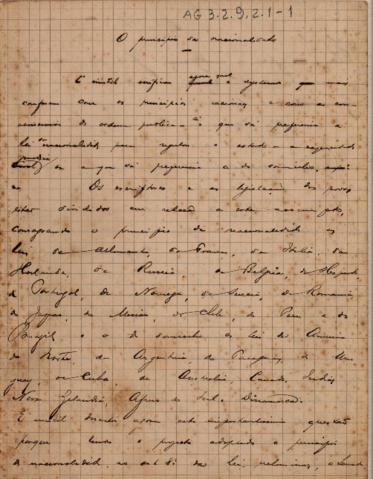 AG 3.2.9.2.1-1
O principio da nacionalidade
E inutil verificar agora qual o systema que mais
conforma com os principios e com as con
da ordem publica: o que dá preferencia a
lei da nacionalidade para regular o estado e a capacidade
ou a que dá preferencia a do domicilio,
Os escriptores e as legislações dos povos
divididos em relação a este assumpto,
consagrando o principio da nacionalidade as
leis da Allemanha, da França, da Italia, da
Hollanda, da Russia, da Belgica, de
de Portugal, da Noruega, da Suecia, da Romania,
do Japão, do Mexico, do Chile, do Peru e do
Brazil e o do domicilio as leis da America
do Norte, da Argentina, do Paraguay, do Uru
guay, de Cuba, da Australia, Canadá, Indias,
Nova Zelandia, Africa do Sul, Dinamarca.
E inutil discutir agora esta importantissima questão
porque temos o projecto adoptando o principio
da nacionalidade, no art. 8 da lei preliminar, o Senado